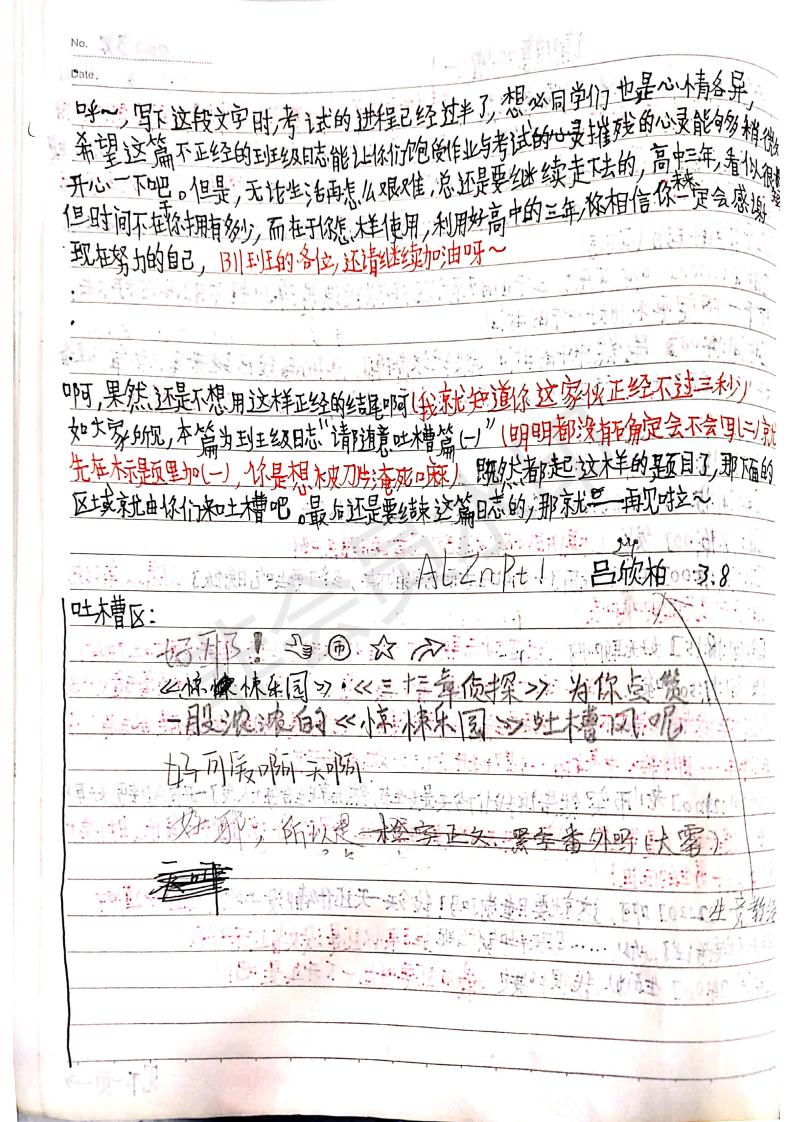 No.
Date.
呼~，写下这段文字时，考试的进程已经过半了，想必同学们也是心情各异，
希望这篇不正经的班级日志能让你们饱受作业与考试摧残的心灵能够稍微
开心一下吧。但是，无论生活再怎么艰难，总还是要继续走下去的，高中三年，看似很
但时间不在于你拥有多少，而在于你怎样使用，利用好高中的三年，你相信你未来一定会感谢
现在努力的自己，311班的各位，还请继续加油呀~
.
.
.
啊，果然还是不想用这样正经的结尾啊(我就知道你这家伙正经不过三秒)
如大家所见，本篇为班级日志"请随意吐槽篇(一)"(明明都没有确定会不会写(二)就
先在标题里加(一)，你是想被刀片淹死嘛)。既然都起这样的题目了，那下面的
区域就由你们来吐槽吧。最后还是要结束这篇日志的，那就 再见啦~
吕欣柏 3.8
吐槽区：
好耶！ 币 ☆
《惊悚乐园》·《三十三章侦探》为你点赞
一股浓浓的《惊悚乐园》吐槽风呢
好可爱啊天啊
好耶，所以是 番外吗(大雾)